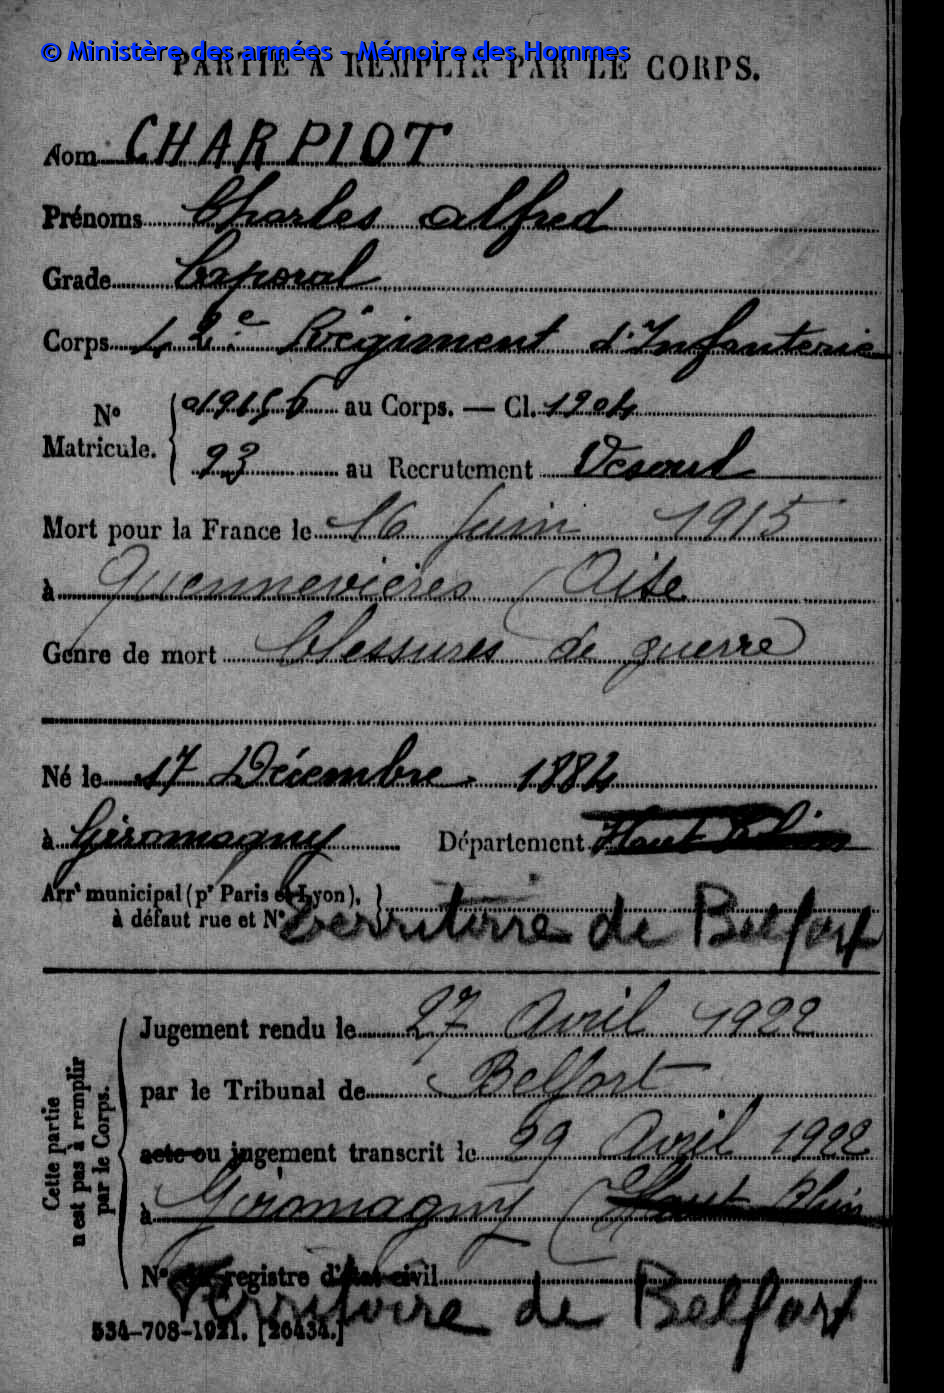 © Ministère des armées - Mémoire des Hommes
PARTIE A REMPLIR PAR LE CORPS.
Nom CHARPIOT
Prénoms Charles Alfred
Grade Caporal
Corps 42e Régiment d'Infanterie
No Matricule. { 019156 au Corps. — Cl. 1904
93 au Recrutement Vesoul
Mort pour la France le 16 Juin 1915
à Quennevières (Oise
Genre de mort blessures de guerre)
Né le 17 Décembre 1884
à Giromagny Département Haut Rhin
Arrt municipal (pr Paris et Lyon), }
à défaut rue et No
Territoire de Belfort
Cette partie n'est pas à remplir par le Corps.
Jugement rendu le 27 Avril 1922
par le Tribunal de Belfort
acte ou jugement transcrit le 29 Avril 1922
à Giromagny (Haut Rhin
No du registre d'état civil
Territoire de Belfort
534-708-1921. [26434.]